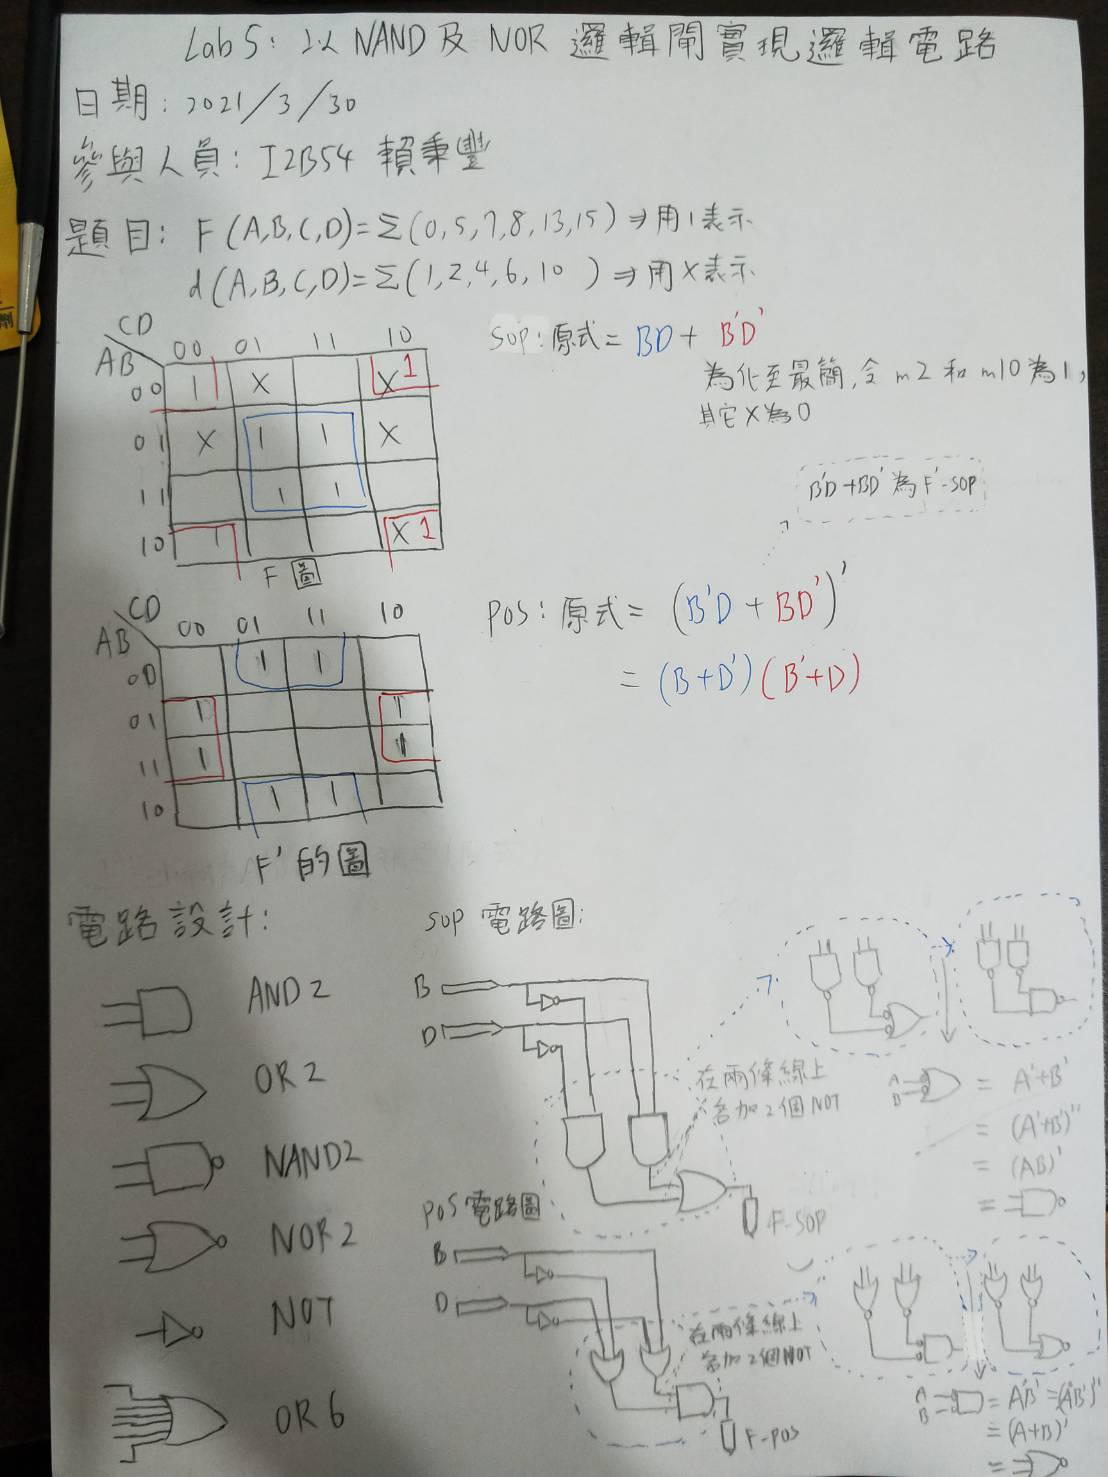 Lab 5: 以 NAND 及 NOR 邏輯閘實現邏輯電路
日期: 2021/3/30
參與人員: I2B54 賴秉豐
題目: F(A,B,C,D)=Σ(0,5,7,8,13,15)⇒用1表示
d(A,B,C,D)=Σ(1,2,4,6,10 )⇒用X表示
CD
AB 00 01 11 10
00 1 X X 1
01 X 1 1 X
11 1 1
10 1 X 1
F 圖
SOP: 原式= BD + B'D'
為化至最簡,令 m2 和 m10 為1,
其它X為0
B'D+BD' 為 F'-SOP
CD
AB 00 01 11 10
00 1 1
01 1 1
11 1 1
10 1 1
F' 的圖
POS: 原式= (B'D + BD')'
= (B+D')(B'+D)
電路設計:
AND2
OR2
NAND2
NOR2
NOT
OR6
SOP 電路圖:
B
D
在兩條線上
各加2個NOT
F-SOP
A
B
= A'+B'
= (A'+B')''
= (AB)'
=
POS 電路圖
B
D
在兩條線上
各加2個NOT
F-POS
A
B
= A'B' = (A'B')''
= (A+B)'
=